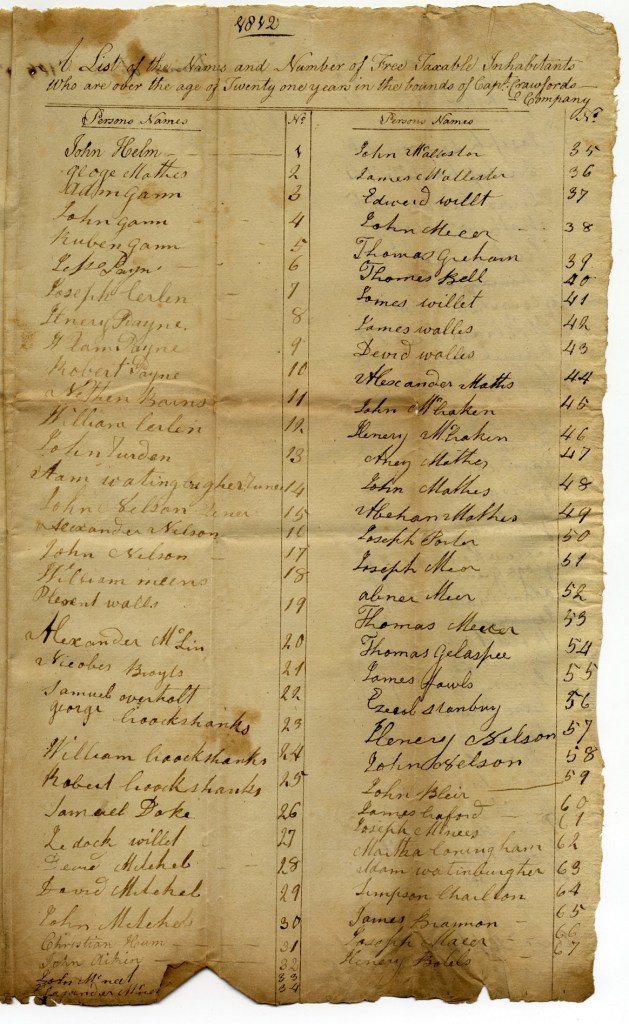 1812
A List of the Names and Number of Free Taxable Inhabitants
Who are over the age of Twenty one years in the bounds of Capt. Crawfords
Company
Persons Names No.
John Helm 1
Gloge Mathes 2
Adam gann 3
John gann 4
Ruben gann 5
Jesse Payn 6
Joseph Cerlen 7
Henery Payne 8
Wlam Payne 9
Robert Payne 10
Nethen Barns 11
William Cerlen 12
John Turden 13
Adam 14
John Nelson 15
Alexander Nilson 16
John Nilson 17
William meens 18
Plesent walls 19
Alexander McLin 20
Nicobes Broyls 21
Samuel overholt 22
george Croockshanks 23
William Croockshanks 24
Robert Croockshanks 25
Samuel Doke 26
Zedock willet 27
Devid Mitchel 28
David Mitchel 29
John Mitchel 30
Christian Hum 31
John Aiken 32
John McNeel 33
34
Persons Names No.
John McAllester 35
James McAllester 36
Edwerd willt 37
John Mecer 38
Thomas Greham 39
Thomes Bell 40
James willet 41
James walles 42
Devid walles 43
Alexander Maths 44
John McCraken 45
Henery McCraken 46
Mathes 47
John Mathes 48
Abehan Mathes 49
Joseph Porter 50
Joseph Meer 51
abner Meer 52
Thomas Mecer 53
Thomas Gelaspee 54
James fowls 55
Ezecel Stanbury 56
Henery Nelson 57
John Nelson 58
John Bleir 59
James Craford 60
Joseph McNees 61
Martha Coningham 62
Adam watinburgher 63
Simpson Charlton 64
James Brannon 65
Joseph Macer 66
Henery Boles 67